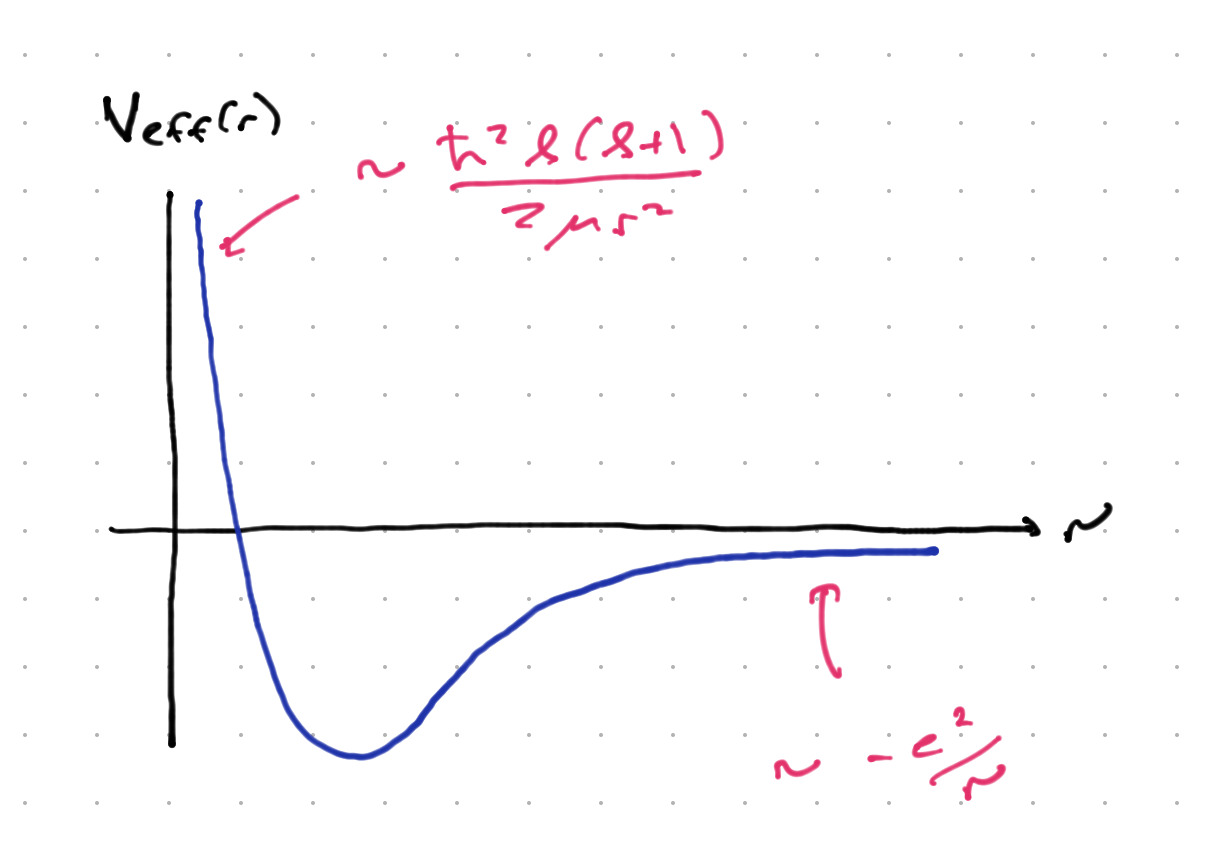 V_eff(r)
~ ħ² ℓ(ℓ+1)
2μr²
r
~ -e²/r